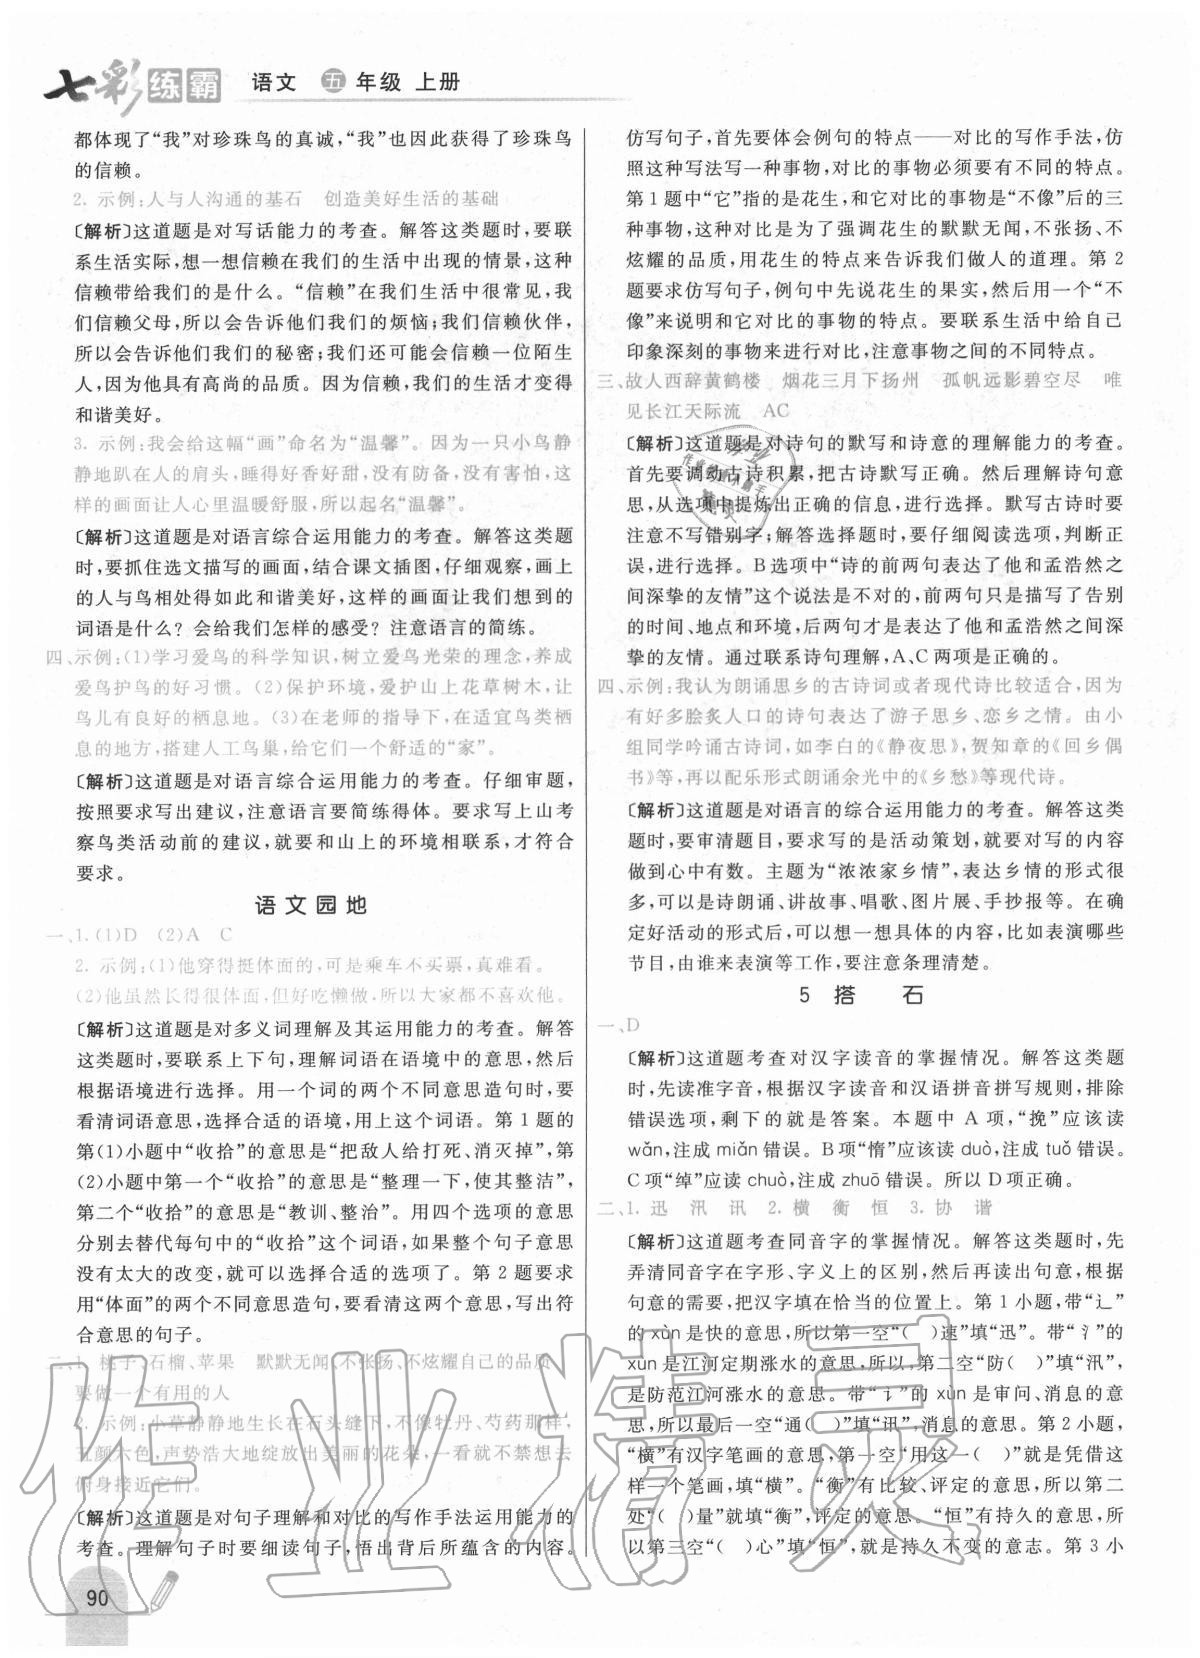 七彩练霸 语文 五 年级 上册
都体现了“我”对珍珠鸟的真诚,“我”也因此获得了珍珠鸟
的信赖。
2. 示例:人与人沟通的基石 创造美好生活的基础
〔解析〕这道题是对写话能力的考查。解答这类题时,要联
系生活实际,想一想信赖在我们的生活中出现的情景,这种
信赖带给我们的是什么。“信赖”在我们生活中很常见,我
们信赖父母,所以会告诉他们我们的烦恼;我们信赖伙伴,
所以会告诉他们我们的秘密;我们还可能会信赖一位陌生
人,因为他具有高尚的品质。因为信赖,我们的生活才变得
和谐美好。
3. 示例:我会给这幅“画”命名为“温馨”。因为一只小鸟静
静地趴在人的肩头,睡得好香好甜,没有防备,没有害怕,这
样的画面让人心里温暖舒服,所以起名“温馨”。
〔解析〕这道题是对语言综合运用能力的考查。解答这类题
时,要抓住选文描写的画面,结合课文插图,仔细观察,画上
的人与鸟相处得如此和谐美好,这样的画面让我们想到的
词语是什么?会给我们怎样的感受?注意语言的简练。
四、示例:(1)学习爱鸟的科学知识,树立爱鸟光荣的理念,养成
爱鸟护鸟的好习惯。(2)保护环境,爱护山上花草树木,让
鸟儿有良好的栖息地。(3)在老师的指导下,在适宜鸟类栖
息的地方,搭建人工鸟巢,给它们一个舒适的“家”。
〔解析〕这道题是对语言综合运用能力的考查。仔细审题,
按照要求写出建议,注意语言要简练得体。要求写上山考
察鸟类活动前的建议,就要和山上的环境相联系,才符合
要求。
语文园地
一、1.(1)D (2)A C
2. 示例:(1)他穿得挺体面的,可是乘车不买票,真难看。
(2)他虽然长得很体面,但好吃懒做,所以大家都不喜欢他。
〔解析〕这道题是对多义词理解及其运用能力的考查。解答
这类题时,要联系上下句,理解词语在语境中的意思,然后
根据语境进行选择。用一个词的两个不同意思造句时,要
看清词语意思,选择合适的语境,用上这个词语。第1题的
第(1)小题中“收拾”的意思是“把敌人给打死、消灭掉”,第
(2)小题中第一个“收拾”的意思是“整理一下,使其整洁”,
第二个“收拾”的意思是“教训、整治”。用四个选项的意思
分别去替代每句中的“收拾”这个词语,如果整个句子意思
没有太大的改变,就可以选择合适的选项了。第2题要求
用“体面”的两个不同意思造句,要看清这两个意思,写出符
合意思的句子。
二、1. 桃子、石榴、苹果 默默无闻、不张扬、不炫耀自己的品质
要做一个有用的人
2. 示例:小草静静地生长在石头缝下,不像牡丹、芍药那样,
五颜六色,声势浩大地绽放出美丽的花朵,一看就不禁想去
俯身接近它们。
〔解析〕这道题是对句子理解和对比的写作手法运用能力的
考查。理解句子时要细读句子,悟出背后所蕴含的内容。
90
仿写句子,首先要体会例句的特点——对比的写作手法,仿
照这种写法写一种事物,对比的事物必须要有不同的特点。
第1题中“它”指的是花生,和它对比的事物是“不像”后的三
种事物,这种对比是为了强调花生的默默无闻,不张扬、不
炫耀的品质,用花生的特点来告诉我们做人的道理。第2
题要求仿写句子,例句中先说花生的果实,然后用一个“不
像”来说明和它对比的事物的特点。要联系生活中给自己
印象深刻的事物来进行对比,注意事物之间的不同特点。
三、故人西辞黄鹤楼 烟花三月下扬州 孤帆远影碧空尽 唯
见长江天际流 AC
〔解析〕这道题是对诗句的默写和诗意的理解能力的考查。
首先要调动古诗积累,把古诗默写正确。然后理解诗句意
思,从选项中提炼出正确的信息,进行选择。默写古诗时要
注意不写错别字;解答选择题时,要仔细阅读选项,判断正
误,进行选择。B选项中“诗的前两句表达了他和孟浩然之
间深挚的友情”这个说法是不对的,前两句只是描写了告别
的时间、地点和环境,后两句才是表达了他和孟浩然之间深
挚的友情。通过联系诗句理解,A、C两项是正确的。
四、示例:我认为朗诵思乡的古诗词或者现代诗比较适合,因为
有好多脍炙人口的诗句表达了游子思乡、恋乡之情。由小
组同学吟诵古诗词,如李白的《静夜思》,贺知章的《回乡偶
书》等,再以配乐形式朗诵余光中的《乡愁》等现代诗。
〔解析〕这道题是对语言的综合运用能力的考查。解答这类
题时,要审清题目,要求写的是活动策划,就要对写的内容
做到心中有数。主题为“浓浓家乡情”,表达乡情的形式很
多,可以是诗朗诵、讲故事、唱歌、图片展、手抄报等。在确
定好活动的形式后,可以想一想具体的内容,比如表演哪些
节目,由谁来表演等工作,要注意条理清楚。
5 搭 石
一、D
〔解析〕这道题考查对汉字读音的掌握情况。解答这类题
时,先读准字音,根据汉字读音和汉语拼音拼写规则,排除
错误选项,剩下的就是答案。本题中A项,“挽”应该读
wǎn,注成miǎn错误。B项“惰”应该读duò,注成tuǒ错误。
C项“绰”应读chuò,注成zhuō错误。所以D项正确。
二、1. 迅 汛 讯 2. 横 衡 恒 3. 协 谐
〔解析〕这道题考查同音字的掌握情况。解答这类题时,先
弄清同音字在字形、字义上的区别,然后再读出句意,根据
句意的需要,把汉字填在恰当的位置上。第1小题,带“辶”
的xùn是快的意思,所以第一空“( )速”填“迅”。带“氵”的
xùn是江河定期涨水的意思,所以,第二空“防( )”填“汛”,
是防范江河涨水的意思。带“讠”的xùn是审问、消息的意
思,所以最后一空“通( )”填“讯”,消息的意思。第2小题,
“横”有汉字笔画的意思,第一空“用这一( )”就是凭借这
样一个笔画,填“横”。“衡”有比较、评定的意思,所以第二
处“( )量”就填“衡”,评定的意思。“恒”有持久的意思,所
以第三空“( )心”填“恒”,就是持久不变的意志。第3小
作业精灵